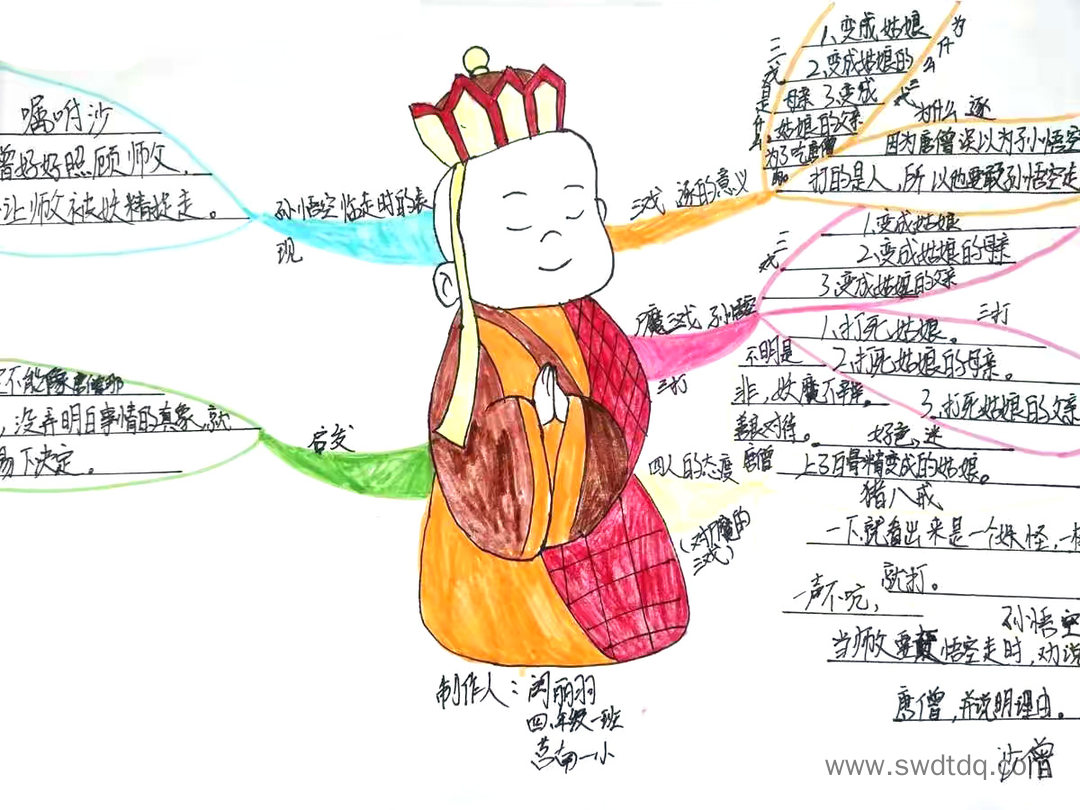 嘱咐沙
曾好好照顾师父，
让师父被妖精捉走。
孙悟空临走时的表
现
没弄明白事情的真象，就
易下决定。
启发
三戏 逐的意义
三戏是什么
1、变成姑娘
2、变成姑娘的
母亲 3、变成
姑娘的父亲
为了吃唐僧
为什么三戏
为什么 逐
因为唐僧误以为孙悟空
打的是人，所以他要取孙悟空走
魔三戏 孙悟空
三打
三戏
1、变成姑娘
2、变成姑娘的母亲
3、变成姑娘的父亲
三打
1、打死姑娘。
2、打死姑娘的母亲。
3、打死姑娘的父亲
四人的态度
（对魔的
三戏）
唐僧
不明是
非，妖魔不辨，
善良对待。
好色，迷
上了白骨精变成的姑娘。
猪八戒
一下就看出来是一个妖怪，一
就打。
孙悟空
一声不吭，
当师父要 悟空走时，劝说
唐僧，并说明理由。
沙僧
制作人：闵丽羽
四年级一班
莒南一小
www.swdtdq.com